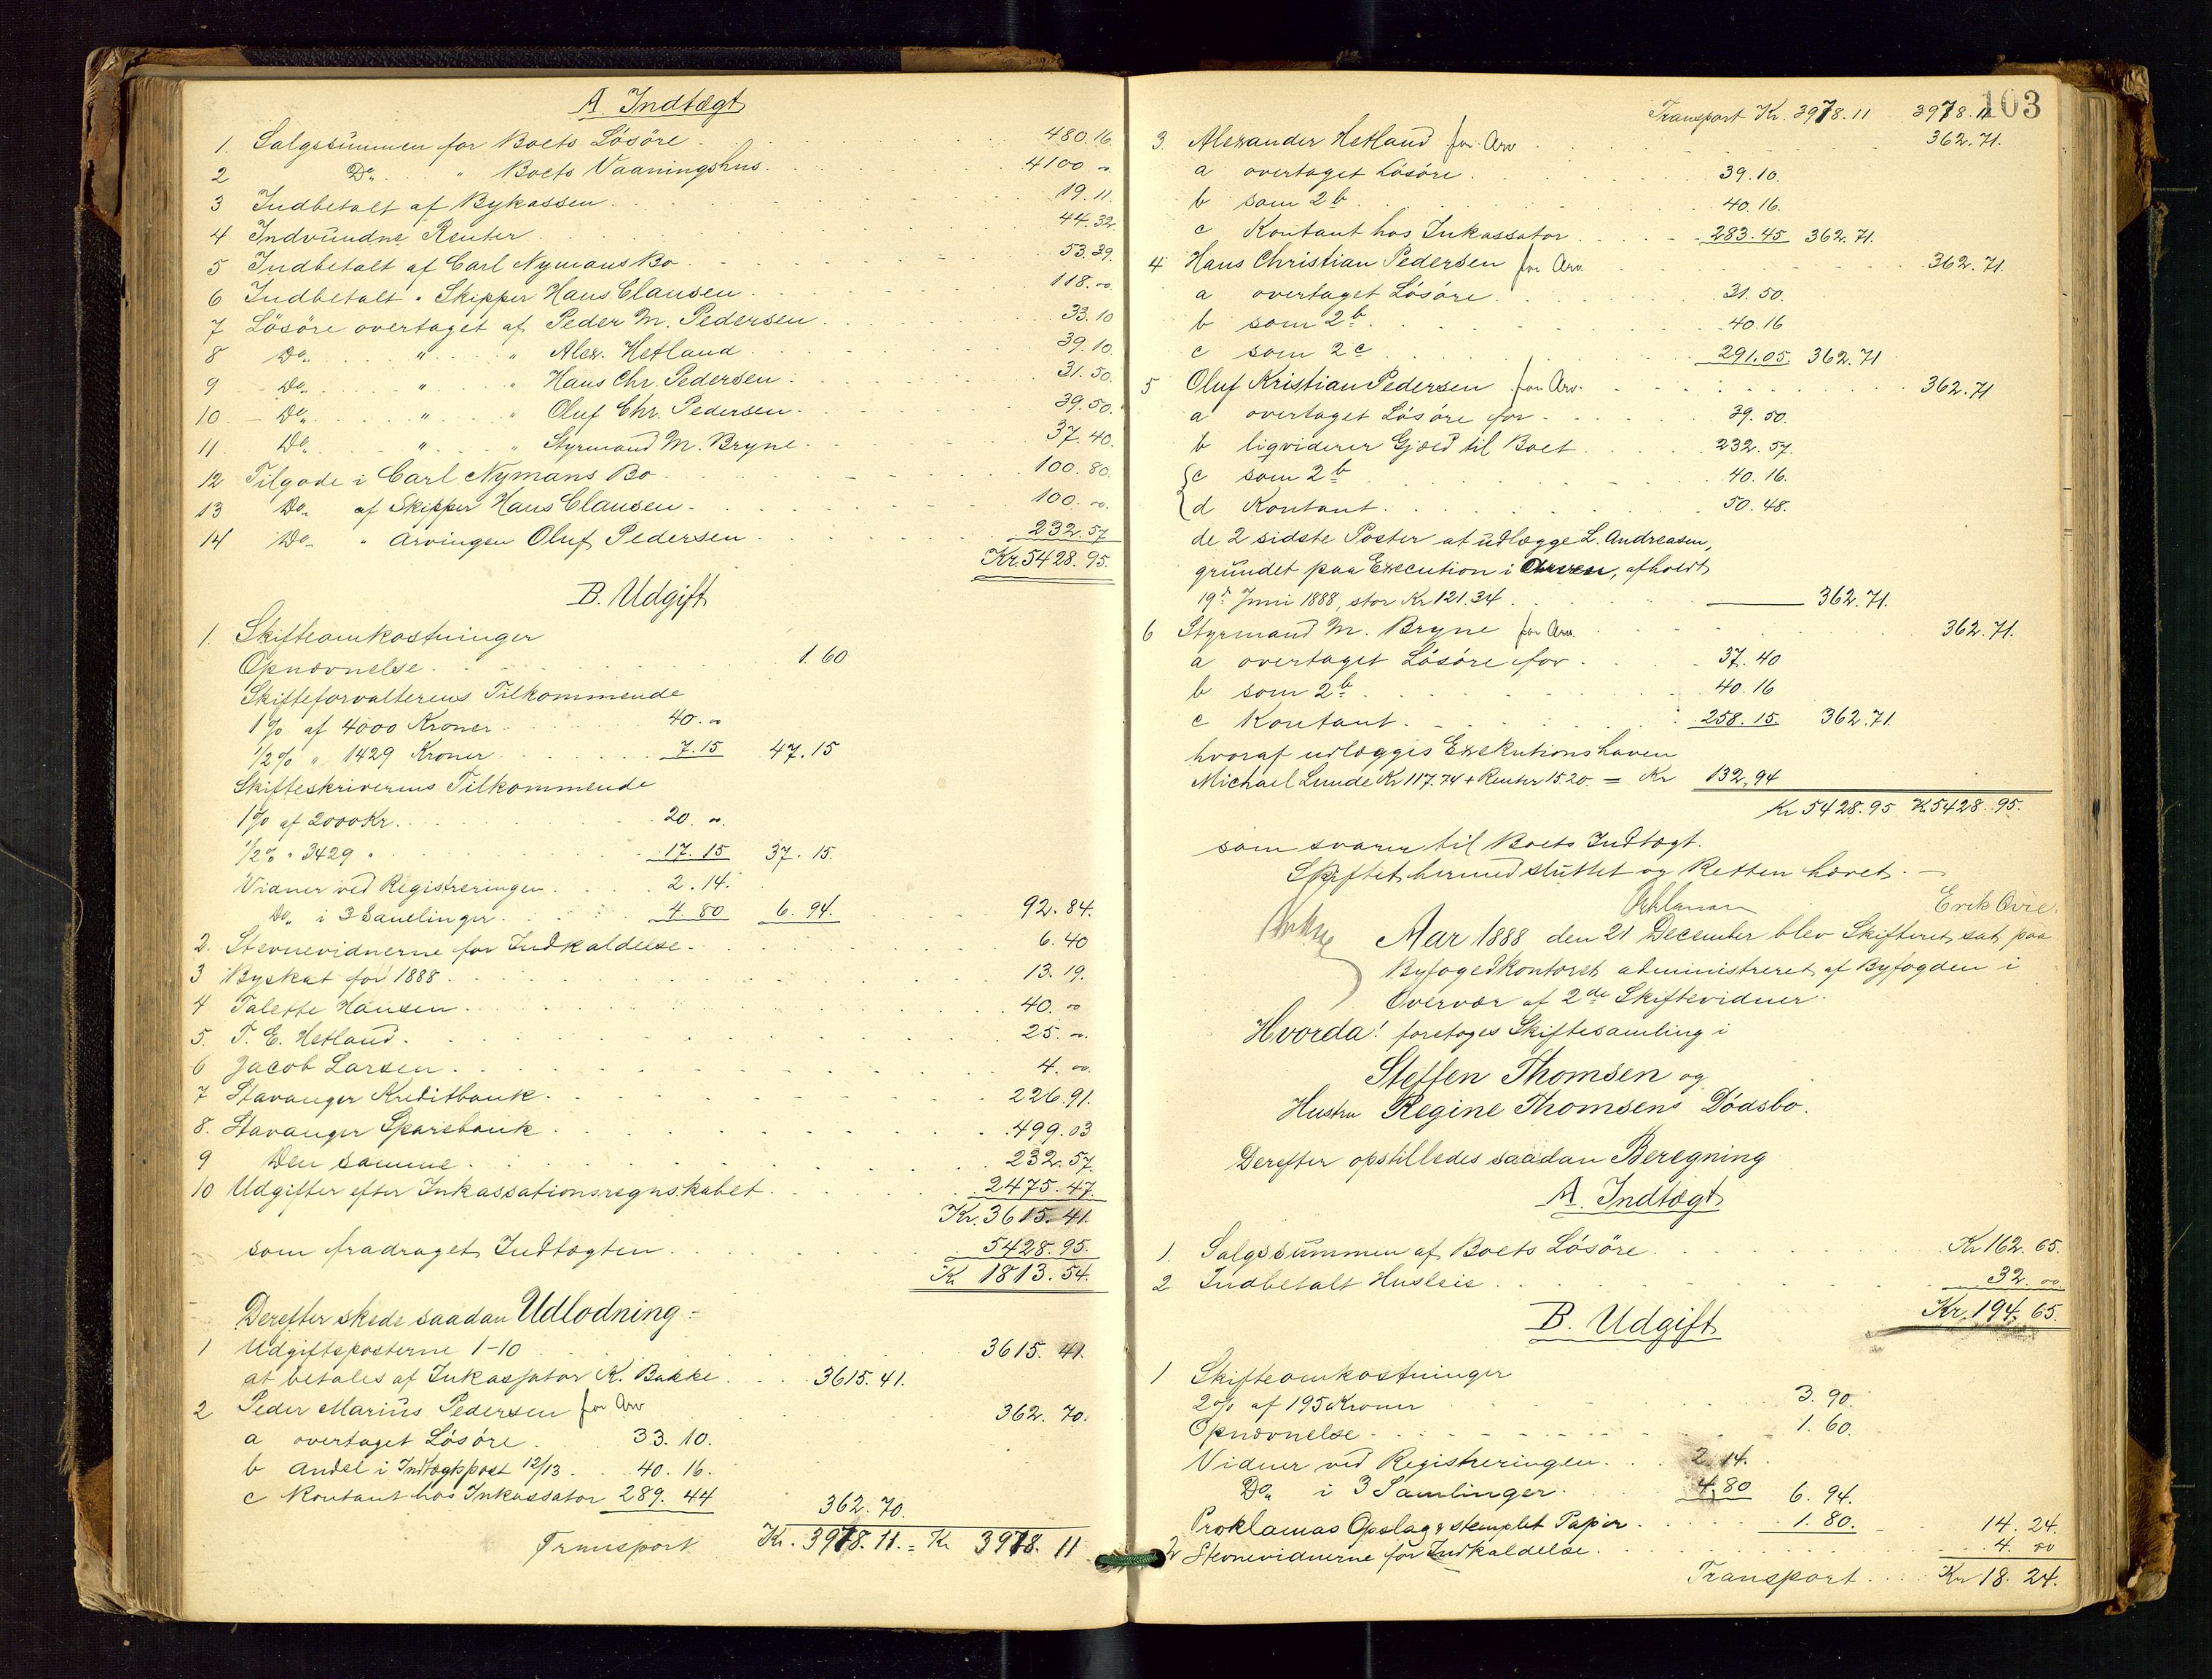 A. Indtægt
1. Salgssummen for Boets Lösöre 480.16
2 Do " Boets Vaaningshus 4100 "
3 Indbetalt af Bykassen 19.11.
4 Indvundne Renter 44.32
5 Indbetalt af Carl Nymans Bo 53.39.
6 Indbetalt " Skipper Hans Clausen 118."
7 Lösöre overtaget af Peder M. Pedersen 33.10
8 Do " " Alex. Hetland 39.10.
9 Do " " Hans Chr. Pedersen 31.50.
10 Do " " Oluf Chr. Pedersen 39.50.
11. Do " " Styrmand M. Bryne 37.40.
12 Tilgode i Carl Nymans Bo 100.80.
13 Do af Skipper Hans Clausen 100."
14 Do " Arvingen Oluf Pedersen 232.57
Kr. 5428.95.
B. Udgift
1. Skifteomkostninger
Opnævnelse 1.60
Skifteforvalterens Tilkommende
1% af 4000 Kroner 40."
1/2% " 1429 Kroner 7.15 47.15
Skifteskriverens Tilkommende
1% af 2000 Kr. 20."
1/2% " 3429 " 17.15 37.15.
Vidner ved Registreringen 2.14.
Do i 3 Samlinger 4.80 6.94. 92.84.
2. Stevnevidnerne for Indkaldelse 6.40
3 Byskat for 1888 13.19.
4 Talette Hansen 40."
5. T. E. Hetland 25."
6 Jacob Larsen 4."
7 Stavanger Kreditbank 226.91.
8. Stavanger Sparebank 499.03
9 Den samme 232.57.
10 Udgifter efter Inkassationsregnskabet 2475.47.
Kr. 3615.41.
som fradraget Indtægten 5428.95.
Kr 1813.54.
Derefter skede saadan Udlodning:
1 Udgiftsposterne 1-10 3615.41.
at betales af Inkassator K. Bakke 3615.41.
2 Peder Marius Pedersen for Arv 362.70.
a overtaget Lösöre 33.10.
b Andel i Indtægtspost 12/13 40.16.
c Kontant hos Inkassator 289.44 362.70.
Transport Kr. 3978.11. = Kr 3978.11
103
Transport Kr. 3978.11 3978.11
3. Alexander Hetland for Arv 362.71.
a overtaget Lösöre 39.10.
b som 2 b 40.16.
c Kontant hos Inkassator 283.45 362.71.
4 Hans Christian Pedersen for Arv 362.71.
a overtaget Lösöre 31.50.
b som 2 b 40.16
c som 2 c 291.05. 362.71
5 Oluf Kristian Pedersen for Arv. 362.71
a overtaget Lösöre for 39.50.
b liqviderer Gjæld til Boet 232.57.
c som 2 b 40.16.
d Kontant 50.48.
de 2 sidste Poster at udlægge L. Andreasen,
grundet paa Execution i Arven, afholdt
19de Juni 1888, stor Kr 121.34 362.71.
6 Styrmand M. Bryne for Arv. 362.71.
a overtaget Lösöre for 37.40
b som 2 b 40.16
c Kontant 258.15. 362.71
hvoraf udlægges Exekutionshaven
Michael Lunde Kr 117.74 + Renter 15.20. = Kr 132.94
Kr 5428.95 Kr 5428.95.
som svarer til Boets Indtægt.
Skiftet hermed sluttet og Retten hævet. —
Erik Qvie.
Aar 1888 den 21 December blev Skifteret sat paa
Byfogedkontoret administreret af Byfogden i
Overvær af 2de Skiftevidner.
Hvorda! foretoges Skiftesamling i
Steffen Thomsen og
Hustru Regine Thomsens Dödsbo.
Derefter opstilledes saadan Beregning
A. Indtægt
1. Salgssummen af Boets Lösöre Kr 162.65.
2 Indbetalt Husleie 32."
Kr. 194.65.
B. Udgift
1 Skifteomkostninger
2% af 195 Kroner 3.90.
Opnævnelse 1.60.
Vidner ved Registreringen 2.14.
Do i 3 Samlinger 4.80 6.94.
Proklamas Opslag & stemplet Papir 1.80. 14.24.
2 Stevnevidnerne for Indkaldelse 4."
Transport Kr 18.24.